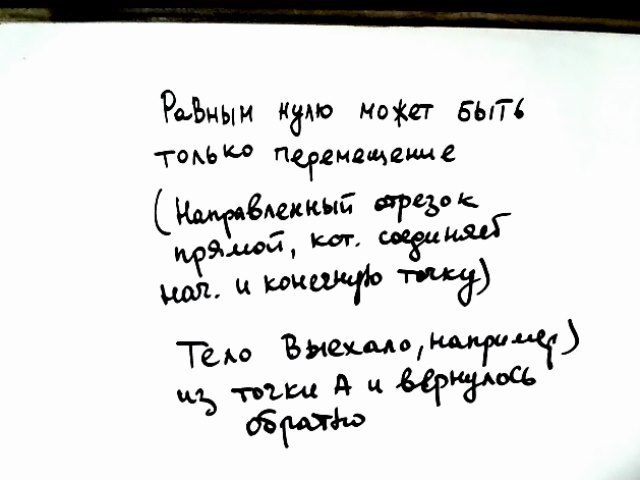 Равным нулю может быть
только перемещение
(Направленный отрезок
прямой, кот. соединяет
нач. и конечную точку)
Тело выехало, например)
из точки А и вернулось
обратно